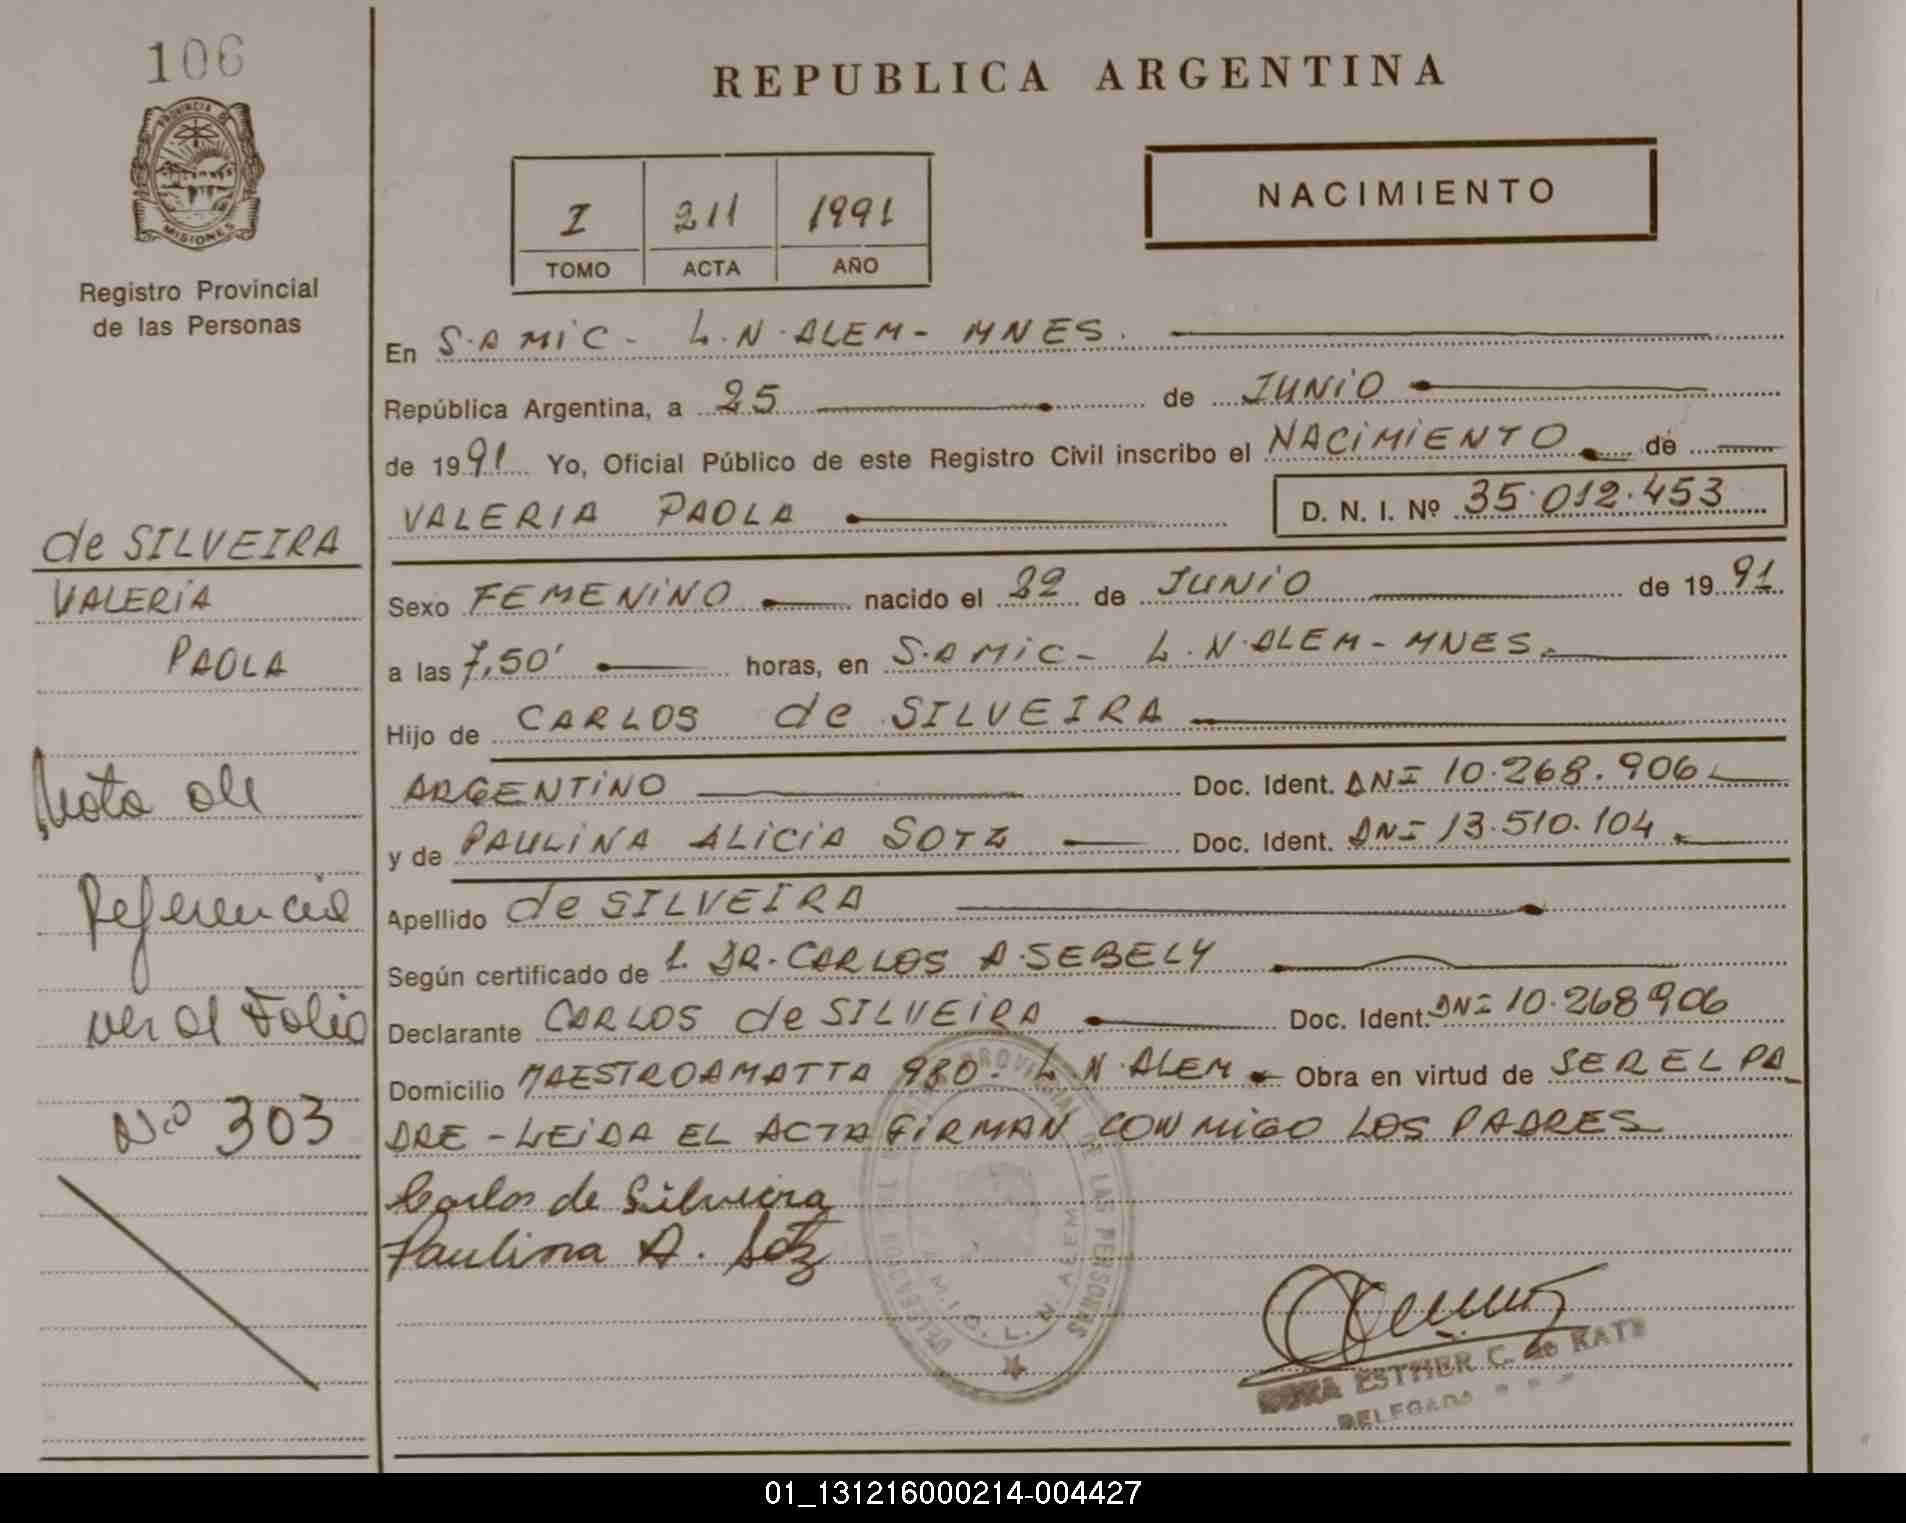 106
PROVINCIA DE
MISIONES
Registro Provincial
de las Personas
de SILVEIRA
VALERIA
PAOLA
Nota de
Referencia
ver al Folio
Nº 303
REPUBLICA ARGENTINA
I 211 1991
TOMO ACTA AÑO
NACIMIENTO
En S.A MIC - L.N. ALEM - MNES.
República Argentina, a 25 de JUNIO
de 1991 Yo, Oficial Público de este Registro Civil inscribo el NACIMIENTO de
VALERIA PAOLA D. N. I. Nº 35.012.453
Sexo FEMENINO nacido el 22 de JUNIO de 1991
a las 7,50' horas, en S.A MIC - L.N. ALEM - MNES.
Hijo de CARLOS de SILVEIRA
ARGENTINO Doc. Ident. DNI 10.268.906
y de PAULINA ALICIA SOTZ Doc. Ident. DNI 13.510.104
Apellido de SILVEIRA
Según certificado de 1. DR. CARLOS A. SEBELY
Declarante CARLOS de SILVEIRA Doc. Ident. DNI 10.268906
Domicilio MAESTROAMATTA 980. L N. ALEM Obra en virtud de SER EL PA
DRE - LEIDA EL ACTA FIRMAN CONMIGO LOS PADRES
Carlos de Silveira
Paulina A. Sotz
PROVINCIAL DE LAS PERSONAS
L. N. ALEM
ESTHER C. de KATZ
DELEGADA
01_131216000214-004427